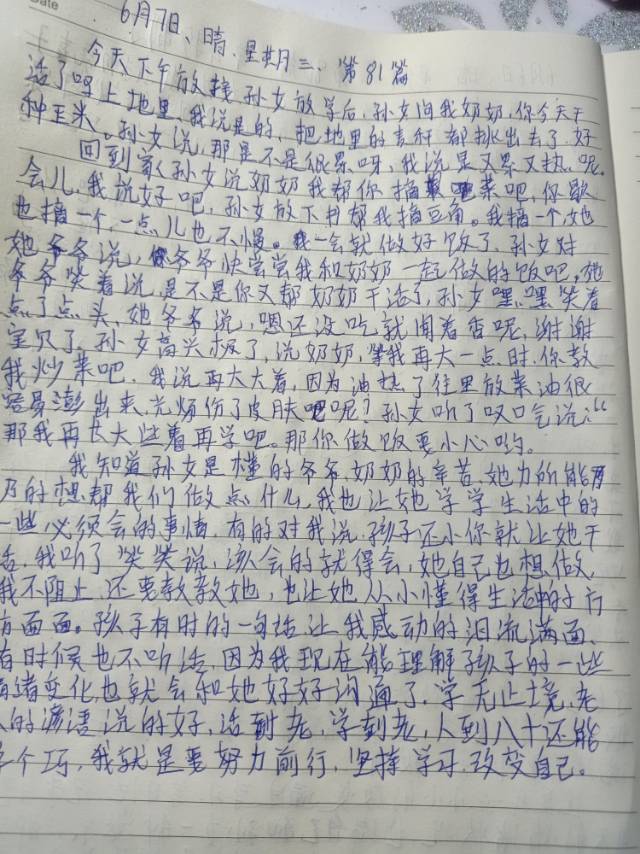 Date
6月7日、晴.星期三、第81篇
今天下午放接孙女放学后,孙女问我奶奶,你今天干
活了吗上地里,我说是的,把地里的麦秆都挑出去了,好
种玉米。孙女说,那是不是很累呀,我说是又累又热呢。
回到家孙女说奶奶我帮你摘菜吧,你歇
会儿,我说好吧,孙女放下书帮我摘豆角。我摘一个她
也摘一个,一点儿也不慢。我一会就做好饭了,孙女对
她爷爷说,爷爷快尝尝我和奶奶一起做的饭吧,她
爷爷笑着说,是不是你又帮奶奶干活了,孙女嘿嘿笑着
点了点头,她爷爷说,嗯还没吃就闻着香呢,谢谢
宝贝了,孙女高兴极了,说奶奶,等我再大一点时,你教
我炒菜吧,我说再大大着,因为油热了往里放菜油很
容易澎出来,光烫伤了皮肤吧呢?孙女听了叹口气说:“
那我再长大些着再学吧。那你做饭要小心哟。
我知道孙女是懂的爷爷,奶奶的辛苦,她力所能
乃的想帮我们做点什么,我也让她学学生活中的
一些必须会的事情,有的对我说,孩子还小你就让她干
活,我听了笑笑说,该会的就得会,她自己也想做,
我不阻止,还要教教她,也让她从小懂得生活中的方
方面面。孩子有时的一句话,让我感动的泪流满面、
有时候也不听话,因为我现在能理解孩子的一些
情绪变化,也就会和她好好沟通了,学无止境,老
人的谚语说的好,活到老,学到老,人到八十还能
学个巧,我就是要努力前行,坚持学习,改变自己。